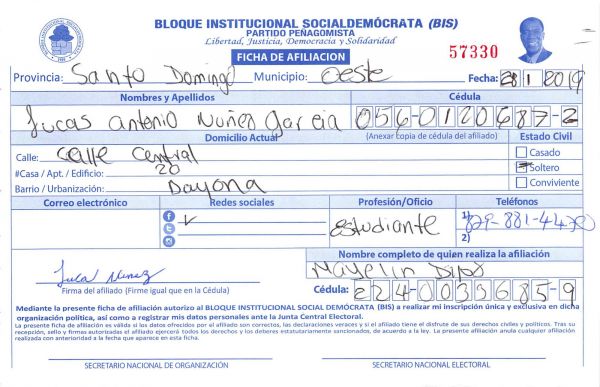 BLOQUE INSTITUCIONAL SOCIALDEMÓCRATA (BIS)
PARTIDO PEÑAGOMISTA
Libertad, Justicia, Democracia y Solidaridad
FICHA DE AFILIACION
57330
Provincia: Santo Domingo Municipio: Oeste Fecha: 28 1 2019
Nombres y Apellidos Cédula
Lucas antonio Nuñez Garcia 056-0120687-2
Domicilio Actual (Anexar copia de cédula del afiliado) Estado Civil
Calle: Calle Central Casado
#Casa / Apt. / Edificio: 20 Soltero
Barrio / Urbanización: Bayona Conviviente
Correo electrónico Redes sociales Profesión/Oficio Teléfonos
estudiante 1) 829-881-4470
2)
Nombre completo de quien realiza la afiliación
Mayelin
Firma del afiliado (Firme igual que en la Cédula) Cédula: 224-0033685-9
Mediante la presente ficha de afiliación autorizo al BLOQUE INSTITUCIONAL SOCIAL DEMÓCRATA (BIS) a realizar mi inscripción única y exclusiva en dicha
organización política, así como a registrar mis datos personales ante la Junta Central Electoral.
La presente ficha de afiliación es válida si las datos ofrecidos por el afiliado son correctos, las declaraciones veraces y si el afiliado tiene el disfrute de sus derechos civiles y políticos. Tras su
recepción, sello y firmas autorizadas el afiliado ejercerá todos los derechos y los deberes estatutariamente sancionados, de acuerdo a la ley. La presente afiliación anula cualquier afiliación
realizada con anterioridad a la fecha que aparece en esta ficha.
SECRETARIO NACIONAL DE ORGANIZACIÓN SECRETARIO NACIONAL ELECTORAL